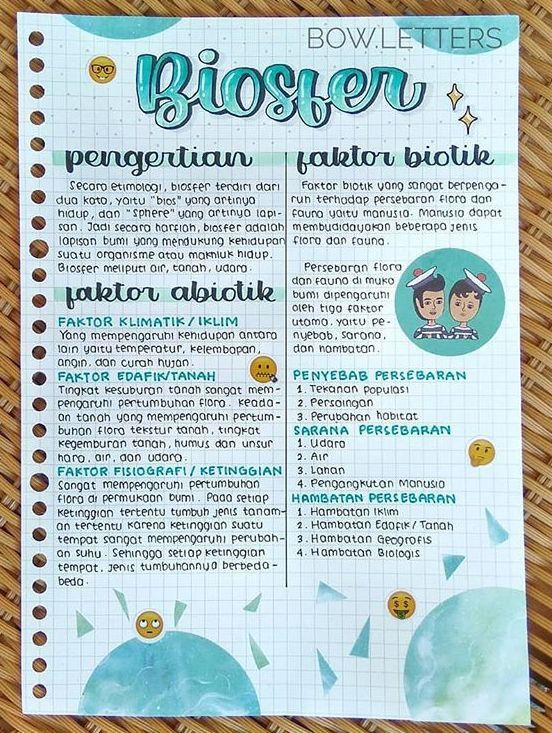 BOW.LETTERS
Biosfer
pengertian
Secara etimologi, biosfer terdiri dari
dua kata, yaitu "bios" yang artinya
hidup, dan "sphere" yang artinya lapi-
san. Jadi secara harfiah, biosfer adalah
lapisan bumi yang mendukung kehidupan
suatu organisme atau makhluk hidup.
Biosfer meliputi air, tanah, udara.
faktor abiotik
FAKTOR KLIMATIK / IKLIM
Yang mempengaruhi kehidupan antara
lain yaitu temperatur, kelembapan,
angin, dan curah hujan.
FAKTOR EDAFIK/TANAH
Tingkat kesuburan tanah sangat mem-
pengaruhi pertumbuhan flora. Keada-
an tanah yang mempengaruhi pertum-
buhan flora tekstur tanah, tingkat
kegemburan tanah, humus dan unsur
hara, air, dan udara.
FAKTOR FISIOGRAFI / KETINGGIAN
Sangat mempengaruhi pertumbuhan
flora di permukaan bumi. Pada setiap
ketinggian tertentu tumbuh jenis tanam-
an tertentu karena ketinggian suatu
tempat sangat mempengaruhi perubah-
an suhu. Sehingga setiap ketinggian
tempat, jenis tumbuhannya berbeda-
beda.
faktor biotik
Faktor biotik yang sangat berpenga-
ruh terhadap persebaran flora dan
fauna yaitu manusia. Manusia dapat
membudidayakan beberapa jenis
flora dan fauna.
Persebaran flora
dan fauna di muka
bumi dipengaruhi
oleh tiga faktor
utama, yaitu pe-
nyebab, sarana,
dan hambatan.
PENYEBAB PERSEBARAN
1. Tekanan populasi
2. Persaingan
3. Perubahan habitat
SARANA PERSEBARAN
1. Udara
2. Air
3. Lahan
4. Pengangkutan Manusia
HAMBATAN PERSEBARAN
1. Hambatan Iklim
2. Hambatan Edafik / Tanah
3. Hambatan Geografis
4. Hambatan Biologis